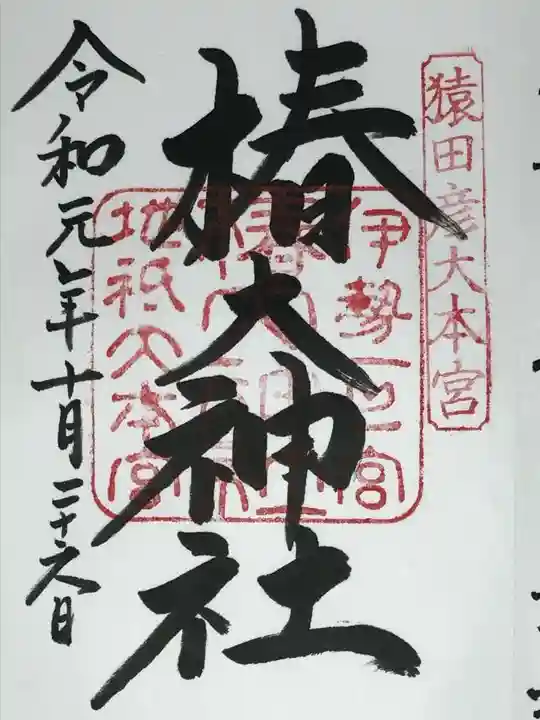 猿田彦大本宮
椿大神社
伊勢一之宮
地祇大本宮
令和元年十月二十六日